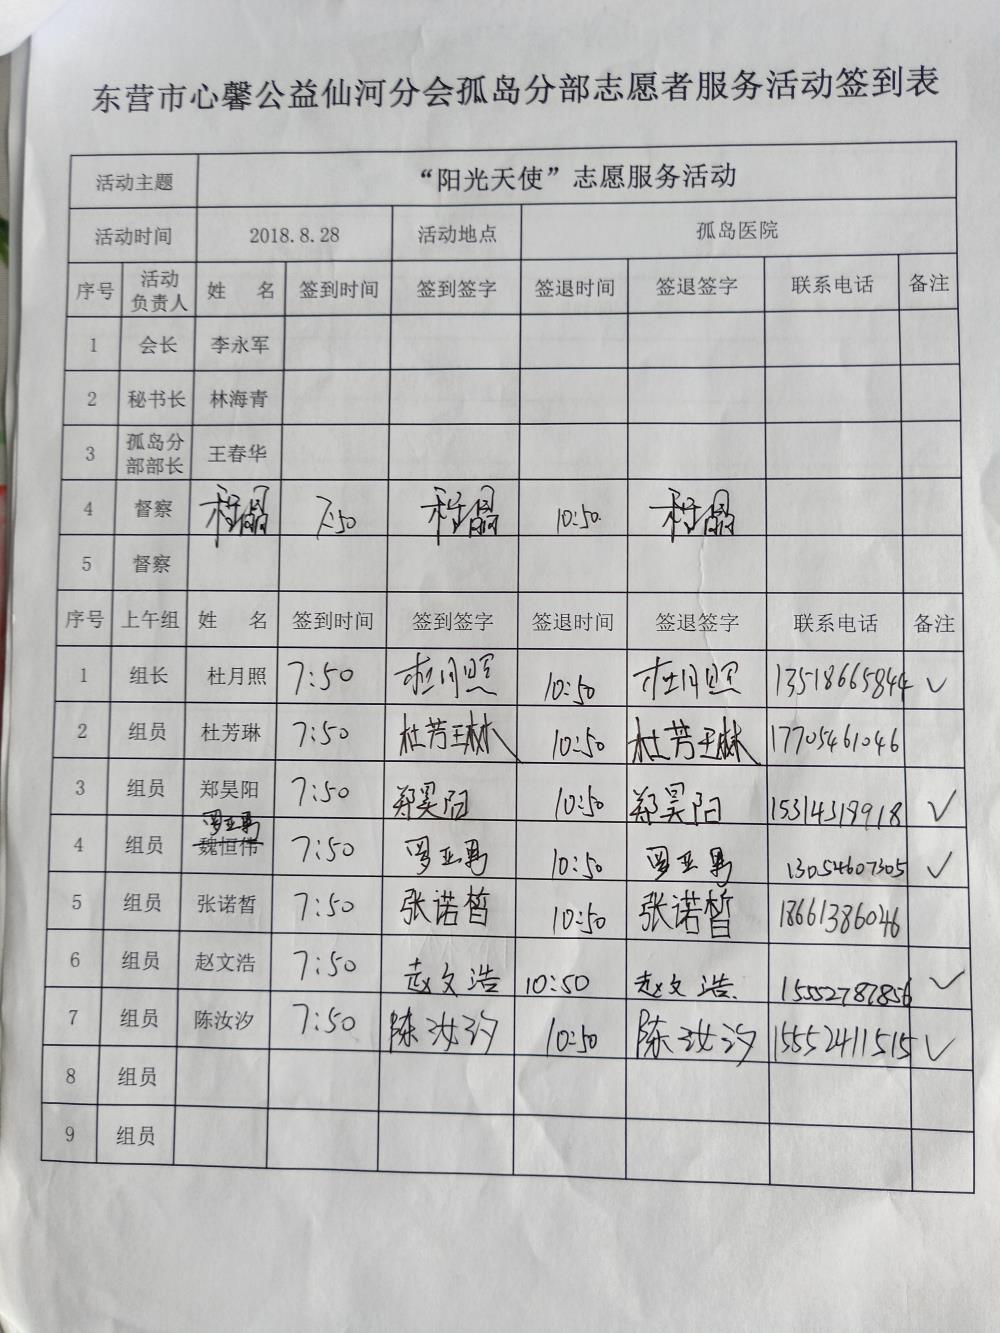 东营市心馨公益仙河分会孤岛分部志愿者服务活动签到表
活动主题 “阳光天使”志愿服务活动
活动时间 2018.8.28 活动地点 孤岛医院
序号 活动负责人 姓名 签到时间 签到签字 签退时间 签退签字 联系电话 备注
1 会长 李永军
2 秘书长 林海青
3 孤岛分部部长 王春华
4 督察 7:50 10:50
5 督察
序号 上午组 姓名 签到时间 签到签字 签退时间 签退签字 联系电话 备注
1 组长 杜月照 7:50 杜月照 10:50 杜月照 13518665844 ✓
2 组员 杜芳琳 7:50 杜芳琳 10:50 杜芳琳 17705461046
3 组员 郑昊阳 7:50 郑昊阳 10:50 郑昊阳 15314319918 ✓
罗亚男
4 组员 魏恒伟 7:50 罗亚男 10:50 罗亚男 13054607305 ✓
5 组员 张诺皙 7:50 张诺皙 10:50 张诺皙 18661386046
6 组员 赵文浩 7:50 赵文浩 10:50 赵文浩 15552787856 ✓
7 组员 陈汝汐 7:50 陈汝汐 10:50 陈汝汐 15552411515 ✓
8 组员
9 组员